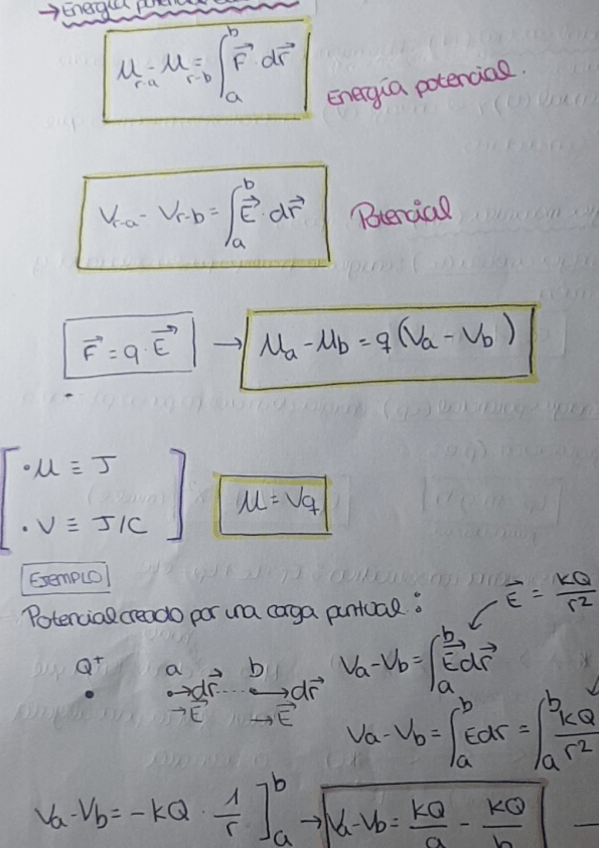 →Energía potencial
U_{r=a} - U_{r=b} = ∫_a^b F⃗ · dr⃗ Energía potencial.
V_{r=a} - V_{r=b} = ∫_a^b E⃗ · dr⃗ Potencial
F⃗ = q · E⃗ → U_a - U_b = q (V_a - V_b)
· U ≡ J
U = Vq
· V ≡ J/C
EJEMPLO
Potencial creado por una carga puntual: E⃗ = kQ/r²
Q⁺ a b V_a - V_b = ∫_a^b E⃗ dr⃗
→dr⃗ .... →dr⃗
→E⃗ →E⃗
V_a - V_b = ∫_a^b E dr = ∫_a^b kQ/r²
V_a - V_b = -kQ · 1/r ]_a^b → V_a - V_b = kQ/a - kQ/b